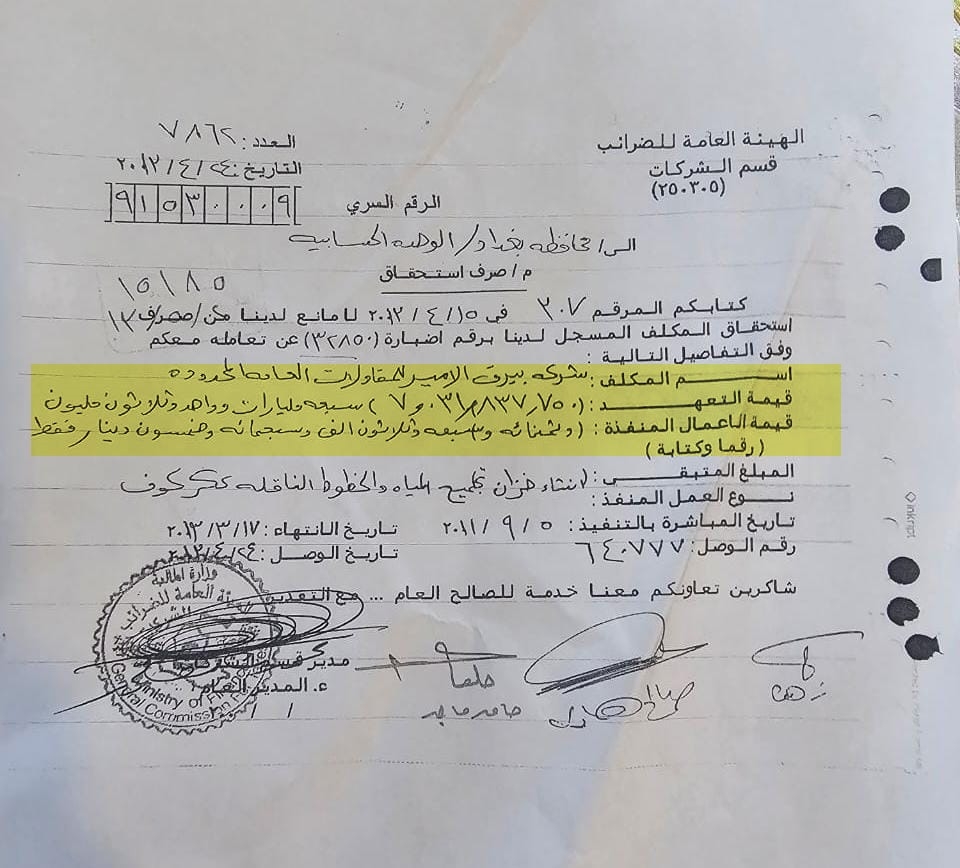 الهيئة العامة للضرائب
قسم الشركات
(٢٥٠٣٠٥)
العدد: ٧٨٦٢
التاريخ: ٢٤ / ٤ / ٢٠١٢
الرقم السري ٩١٥٣٠٠٠٩
الى/ محافظة بغداد / الوحدة الحسابية
م/ صرف استحقاق
١٥١٨٥
كتابكم المرقم ٣٠٧ في ١٥ / ٤ / ٢٠١٢ لا مانع لدينا من/ صرف
استحقاق المكلف المسجل لدينا برقم اضبارة (٣٢٨٥٠) عن تعامله معكم
وفق التفاصيل التالية :
اسم المكلف : شركة بيرق الامير للمقاولات العامة المحدودة
قيمة التعهد : (٧,٠٣١,٨٣٧,٧٥٠) سبعة مليارات وواحد وثلاثون مليون
قيمة الاعمال المنفذة : (وثمنمائه وسبعه وثلاثون الف وسبعمائه وخمسون دينار فقط
( رقما وكتابة )
المبلغ المتبقي :
نوع العمل المنفذ : انشاء خزان تجميع المياه والخطوط الناقلة
تاريخ المباشرة بالتنفيذ : ٥ / ٩ / ٢٠١١ تاريخ الانتهاء : ١٧ / ٣ / ٢٠١٢
رقم الوصل : ٦٤٠٧٧٧ تاريخ الوصل : ٢٤ / ٤ / ٢٠١٢
شاكرين تعاونكم معنا خدمة للصالح العام ... مع التقدير
وزارة المالية
الهيئة العامة للضرائب
Ministry of
General Commission
مدير قسم الشركات
ء. المدير العام
/ /
حامد ماجد